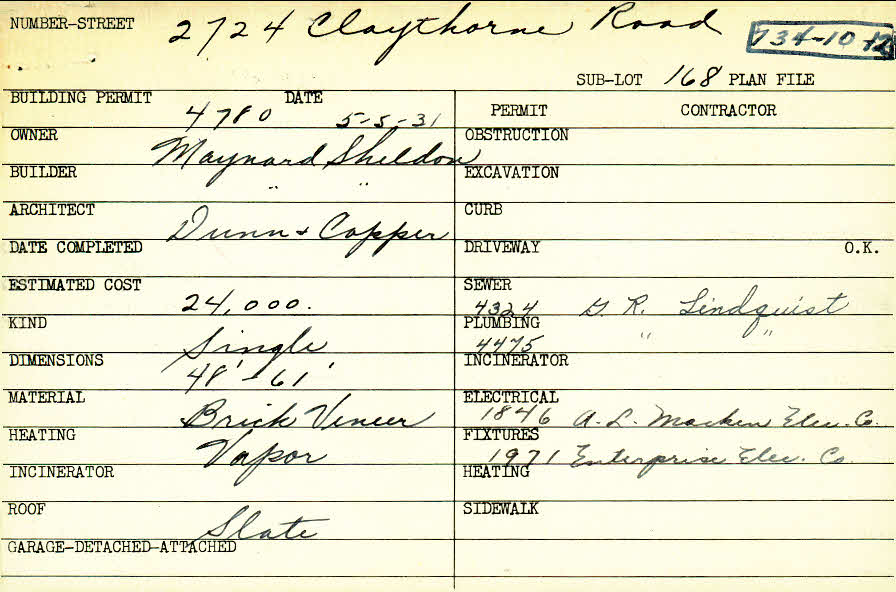 NUMBER-STREET 2724 Claythorne Road 734-10-12
SUB-LOT 168 PLAN FILE
BUILDING PERMIT 4780 DATE 5-5-31
PERMIT CONTRACTOR
OWNER Maynard Sheldon
OBSTRUCTION
BUILDER " "
EXCAVATION
ARCHITECT Dunn + Copper
CURB
DATE COMPLETED
DRIVEWAY O.K.
ESTIMATED COST 24,000.
SEWER 4324 G. R. Lindquist
KIND Single
PLUMBING 4475 " "
DIMENSIONS 48' - 61'
INCINERATOR
MATERIAL Brick Veneer
ELECTRICAL 1846 A. L. Macken Elec. Co.
HEATING Vapor
FIXTURES 1971 Enterprise Elec. Co.
INCINERATOR
HEATING
ROOF Slate
SIDEWALK
GARAGE-DETACHED-ATTACHED